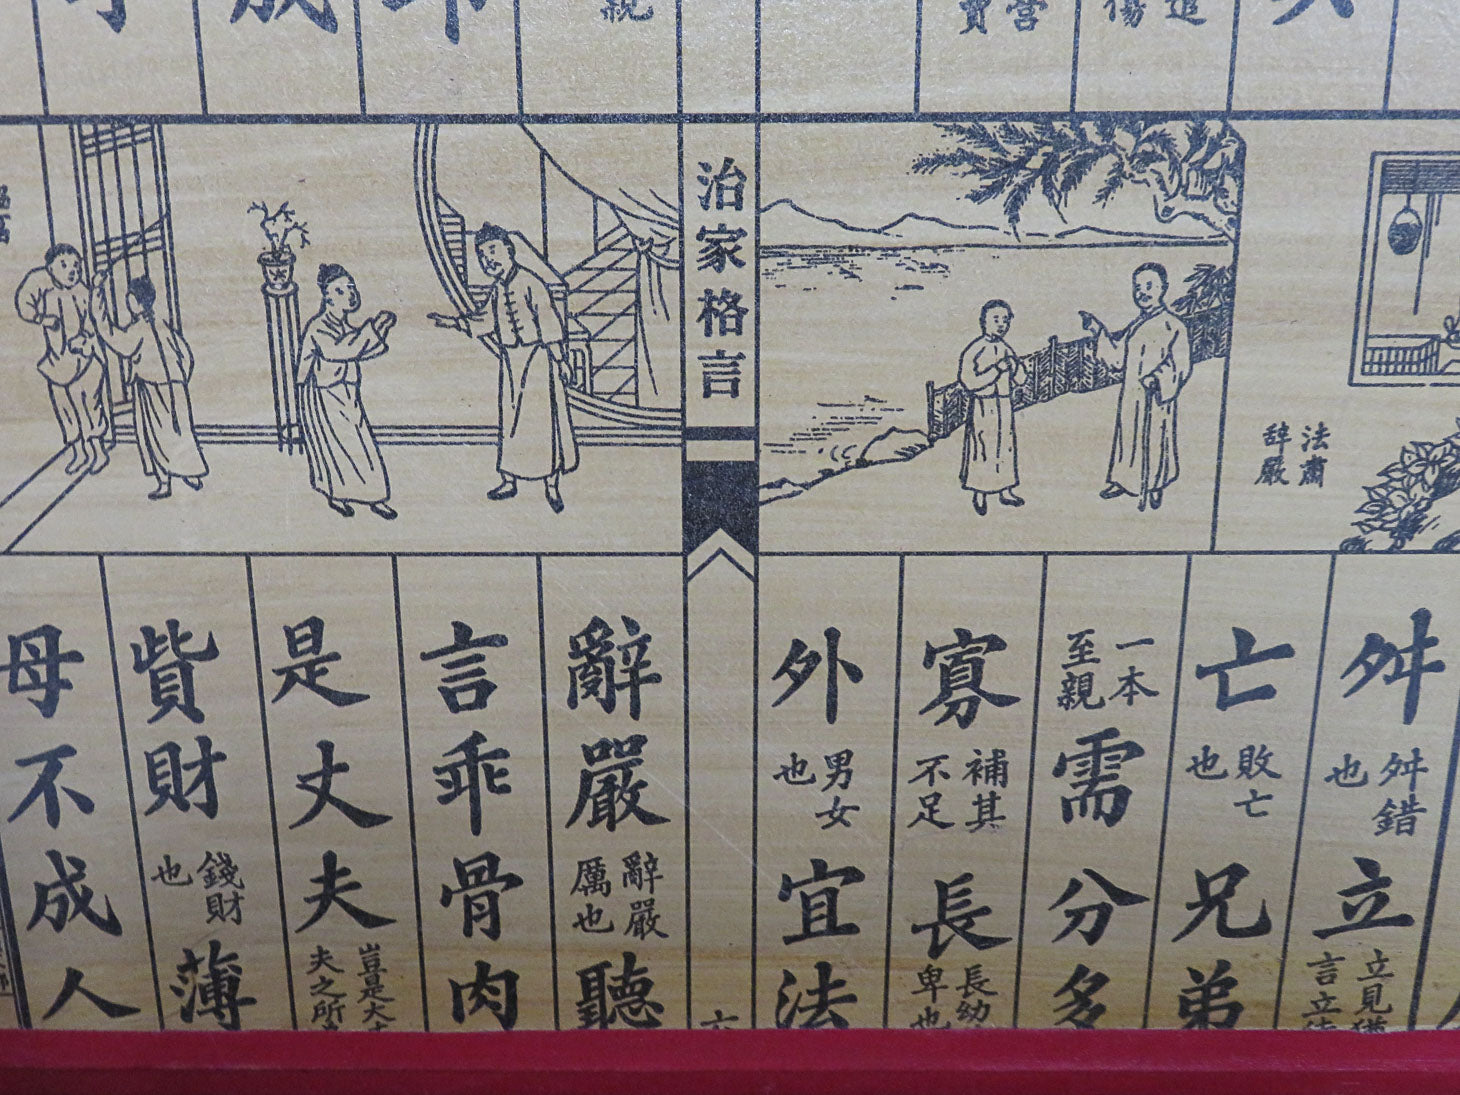 法肅
辞嚴
治家格言
舛舛錯也立立見猶言立
亡敗亡也兄弟
一本至親需分多
寡補其不足長長幼卑也
外男女也宜法
辭嚴辭嚴厲也聽
言乖骨肉
是丈夫豈是大夫之所
貲財錢財也薄
母不成人